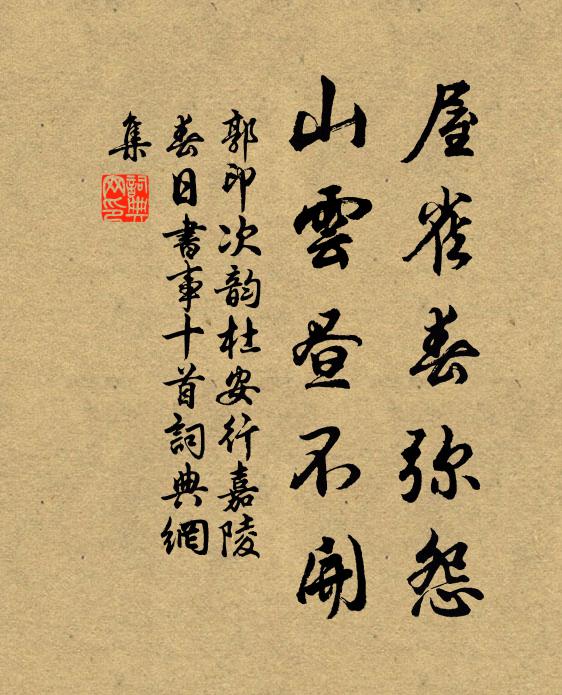 屋雀春弥怨
山雲昼不開
郭印次韵杜安行嘉陵
春日書事十首詞典網
集
詞典
网印